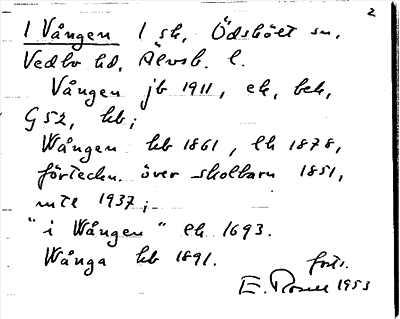 2
1 Vången 1 sk, Ödsbölt sn,
Vedbo hd, Älvsb. l.
Vången jb 1911, ek, bek,
G52, kb;
Wången kb 1861, lk 1878,
förteckn. över skolbarn 1851,
mtl 1937;
"i Wången" lk 1693.
Wånga kb 1891.
forts.
E. Rosell 1953